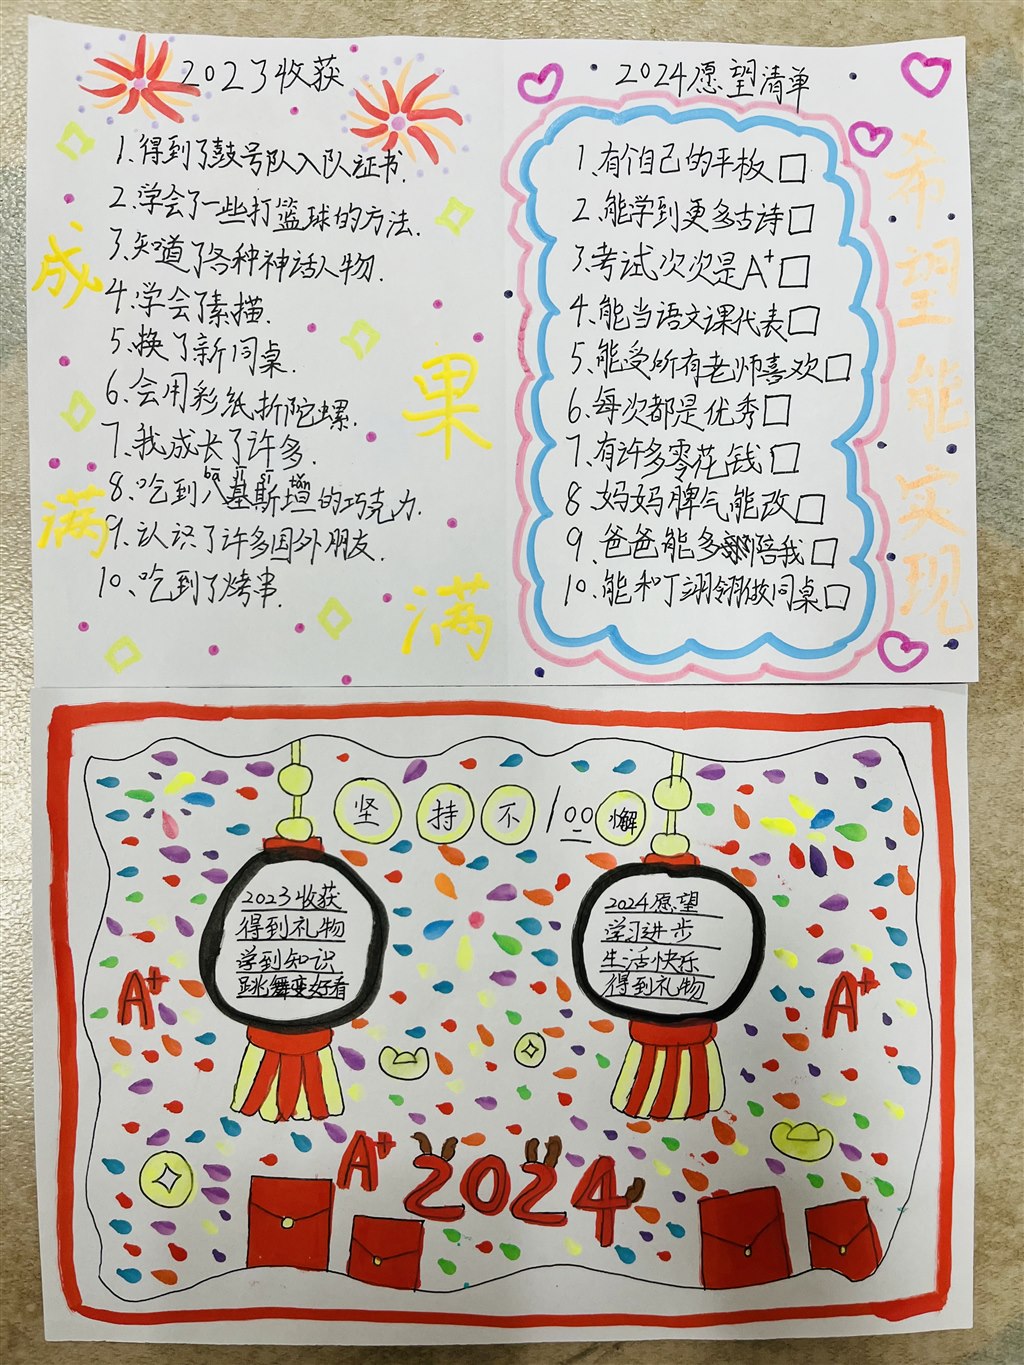 2023收获
1、得到了鼓号队入队证书.
2、学会了一些打篮球的方法.
3、知道了各种神话人物.
4、学会了素描.
5、换了新同桌.
6、会用彩纸折陀螺.
7、我成长了许多.
bā jī sī tǎn
8、吃到八基斯坦的巧克力.
9、认识了许多国外朋友.
10、吃到了烤串.
成
果
满
满
2024愿望清单
1、有个自己的平板□
2、能学到更多古诗□
3、考试次次是A+□
4、能当语文课代表□
5、能受所有老师喜欢□
6、每次都是优秀□
7、有许多零花钱□
8、妈妈脾气能改□
9、爸爸能多陪我□
10、能和丁翊翎做同桌□
希望能实现
坚持不100懈
2023收获
得到礼物
学到知识
跳舞变好看
2024愿望
学习进步
生活快乐
得到礼物
A+
A+
A+
2024